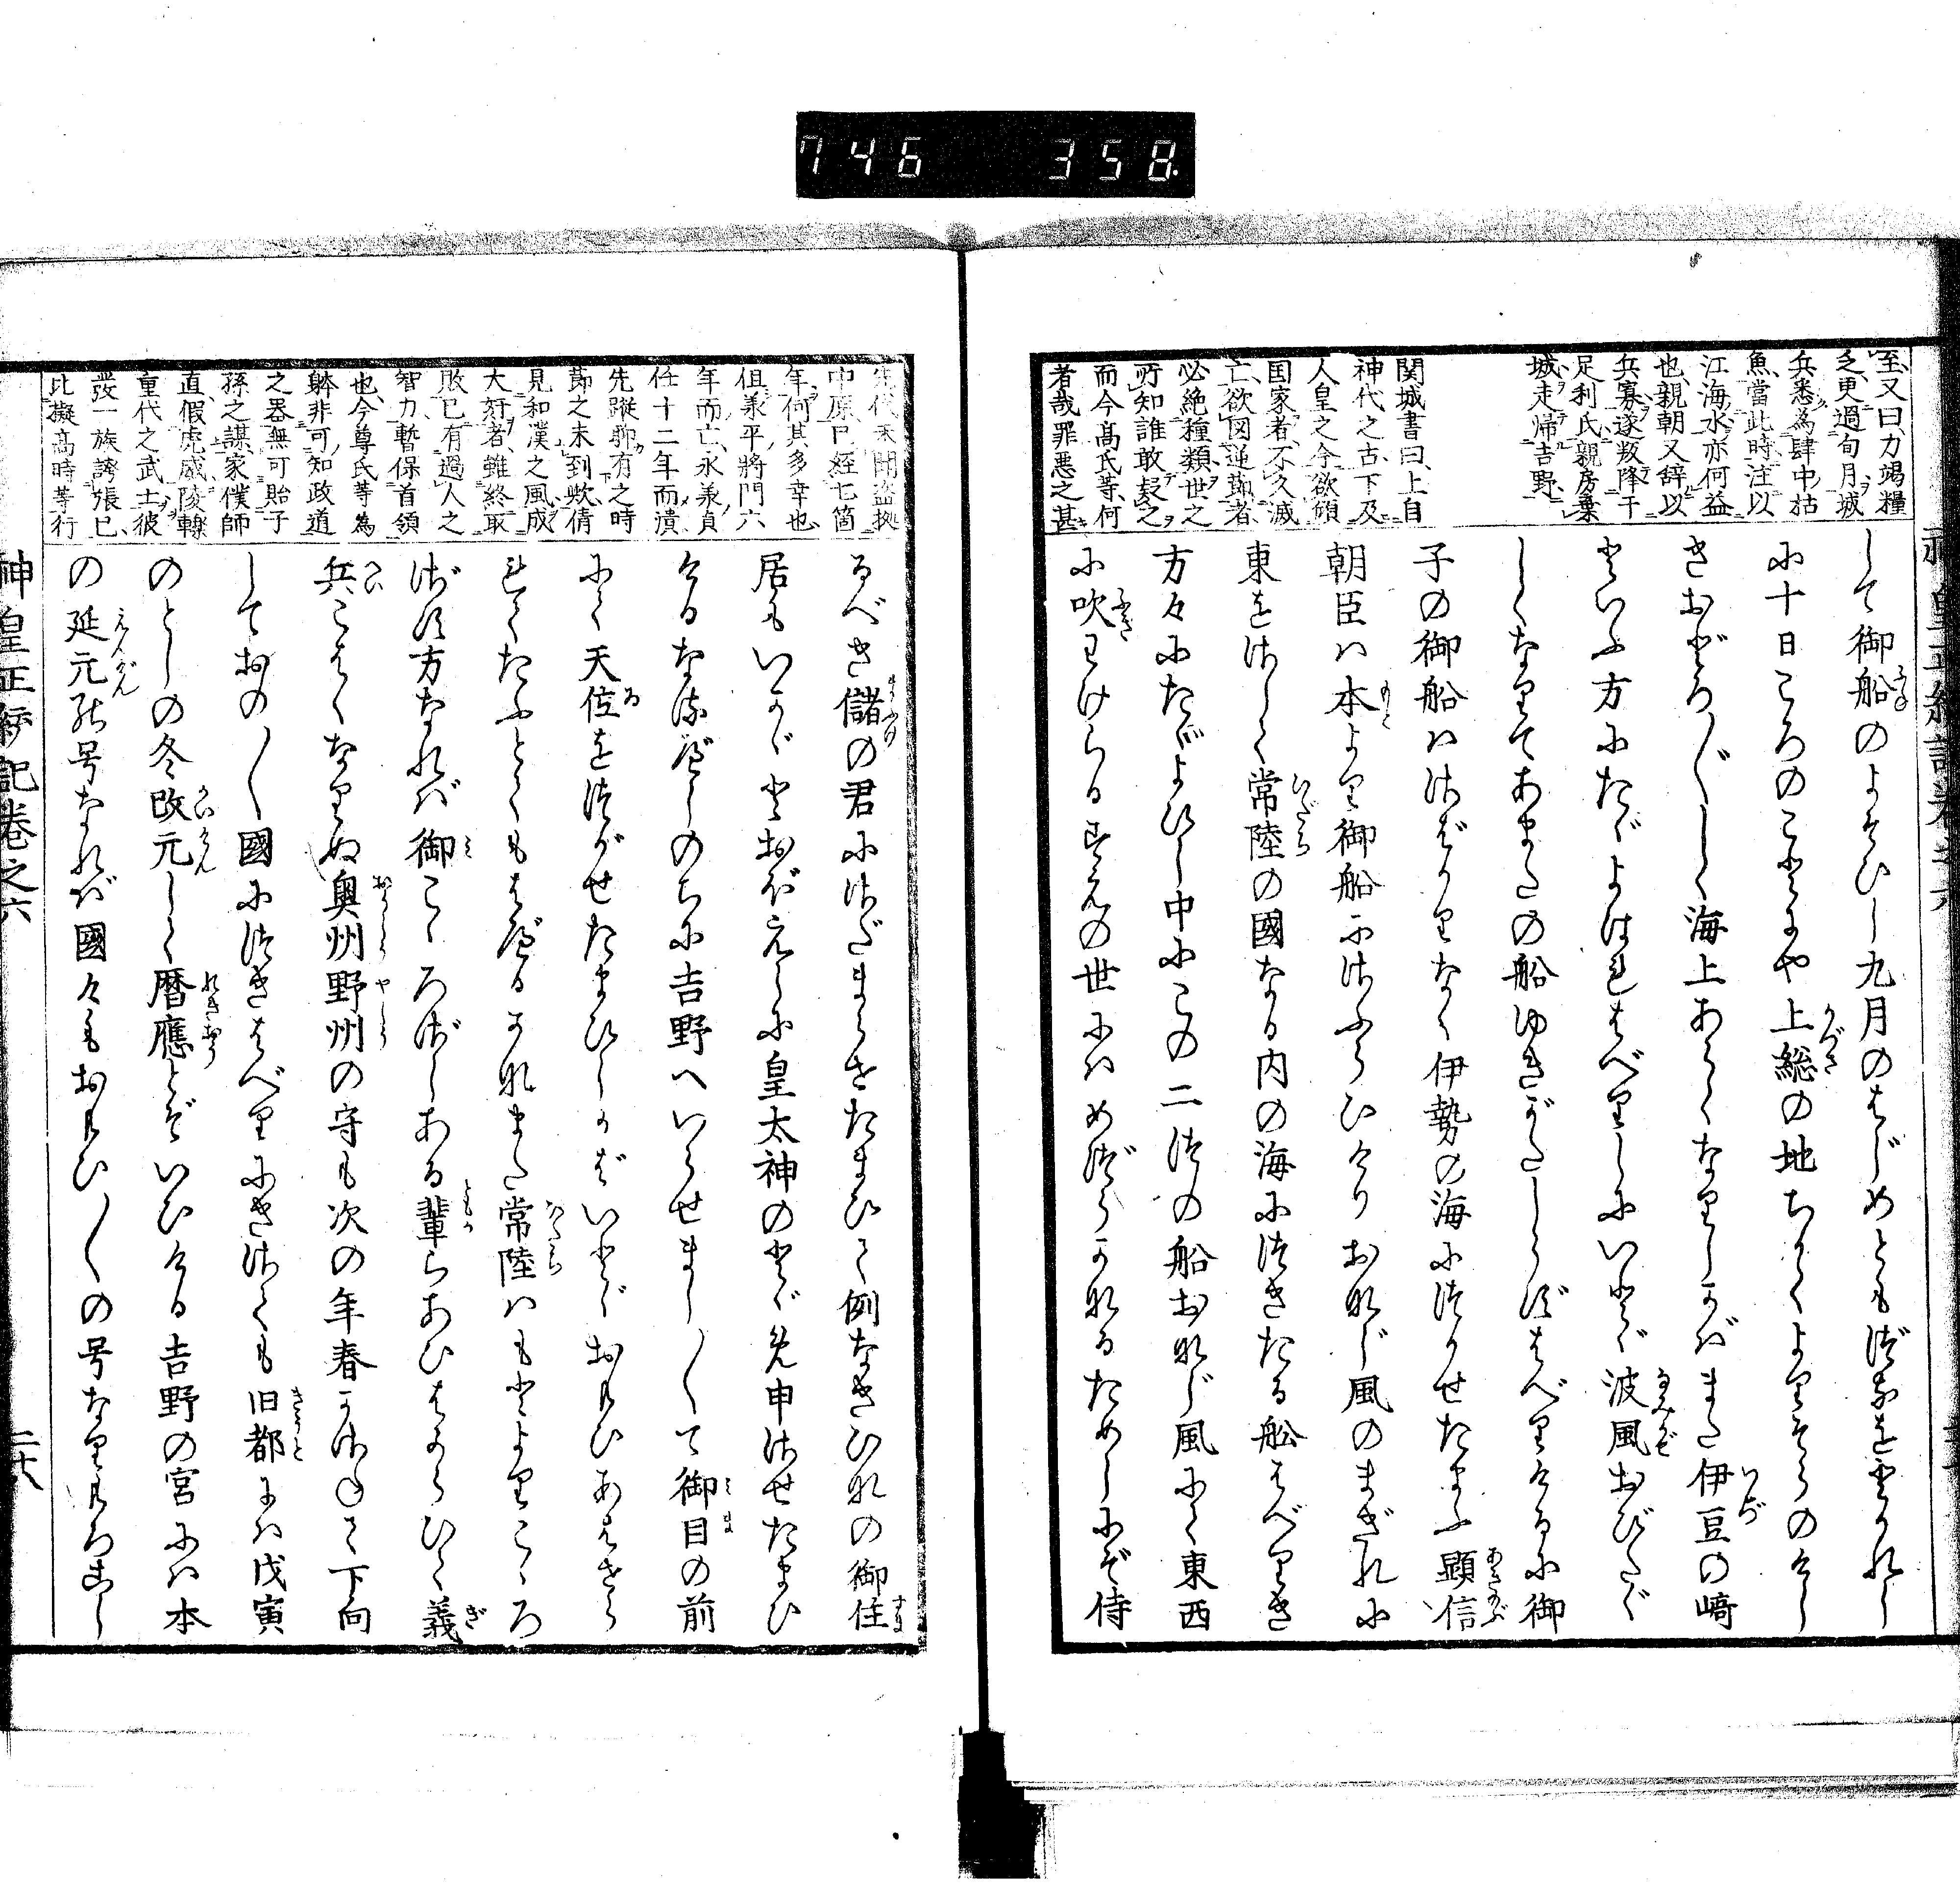 746 358
至又曰力竭糧
乏更過旬月城
兵悉為肆中枯
魚當此時注以
江海水亦何益
也親朝又辞以
兵寡遂叛降于
足利氏親房棄
城走帰吉野
関城書曰上自
神代之古下及
人皇之今欲傾
国家者不久滅
亡欲図逆節者
必絶種類世之
所知誰敢疑之
而今高氏等何
者哉罪悪之甚
して御船のよそひし九月のはじめともづなをとかれし
に十日ころのことにや上総の地ちかくよりそらのけし
きおどろ〳〵しく海上あらくなりしかばまた伊豆の崎
といふ方にたゞよはれはべりしにいとゞ波風おびたゞ
しくなりてあまたの船ゆきがたしらずはべりけるに御
子の御船はさはりなく伊勢の海につかせたまふ顕信
朝臣は本より御船にさふらひけりおなじ風のまぎれに
東をさして常陸の國なる内の海につきたる舩はべりき
方々にたゞよひし中にこの二つの船おなじ風にて東西
に吹わけらるすゑの世にはめづらかなるためしにぞ侍
先代未聞盗拠
中原已経七箇
年何其多幸也
但義平將門六
年而亡永義貞
任十二年而潰
先蹤聊有之時
節之未到歟倩
見和漢之風成
大奸者雖終取
敗已有過人之
智力暫保首領
也今尊氏等為
躰非可知政道
之器無可貽子
孫之謀家僕師
直假虎威陵轢
重代之武士彼
一族誇張已
比擬高時等行
るべき儲の君にさだまらせたまひて例なきひなの御住
居もいかゞとおぼえしに皇太神のとゞめ申させたまひ
けるなるべしのちに吉野へいらせまし〳〵て御目の前
にて天位をつがせたまひしかばいとゞおもひあはせら
れてたふとくもはべるかなまた常陸はもとよりこゝろ
ざす方なれば御こゝろざしある輩らあひはからひて義
兵こはくなりぬ奥州野州の守も次の年春かさねて下向
しておの〳〵國につきはべりにきさても旧都には戊寅
のとしの冬改元して暦應とぞいひける吉野の宮には本
の延元の号なれば國々もおもひ〳〵の号なりもろこし
神皇正統記巻之六
二十八